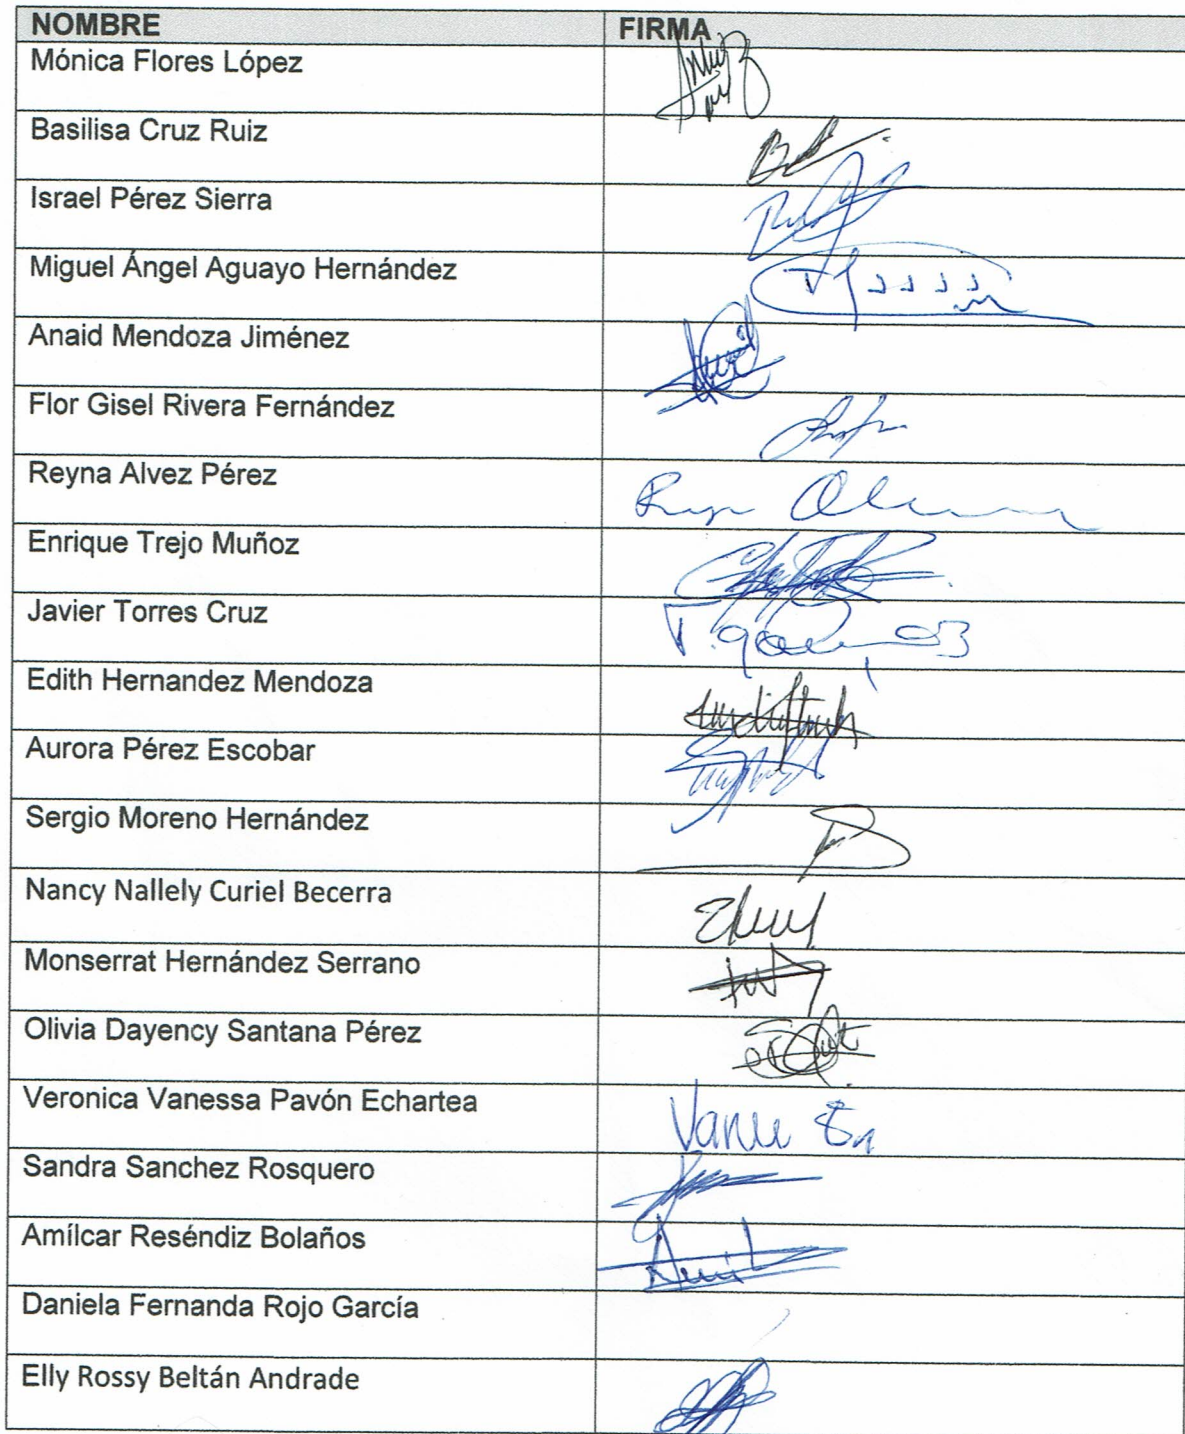 NOMBRE FIRMA
Mónica Flores López
Basilisa Cruz Ruiz
Israel Pérez Sierra
Miguel Ángel Aguayo Hernández
Anaid Mendoza Jiménez
Flor Gisel Rivera Fernández
Reyna Alvez Pérez
Enrique Trejo Muñoz
Javier Torres Cruz
Edith Hernandez Mendoza
Aurora Pérez Escobar
Sergio Moreno Hernández
Nancy Nallely Curiel Becerra
Monserrat Hernández Serrano
Olivia Dayency Santana Pérez
Veronica Vanessa Pavón Echartea
Sandra Sanchez Rosquero
Amílcar Reséndiz Bolaños
Daniela Fernanda Rojo García
Elly Rossy Beltán Andrade